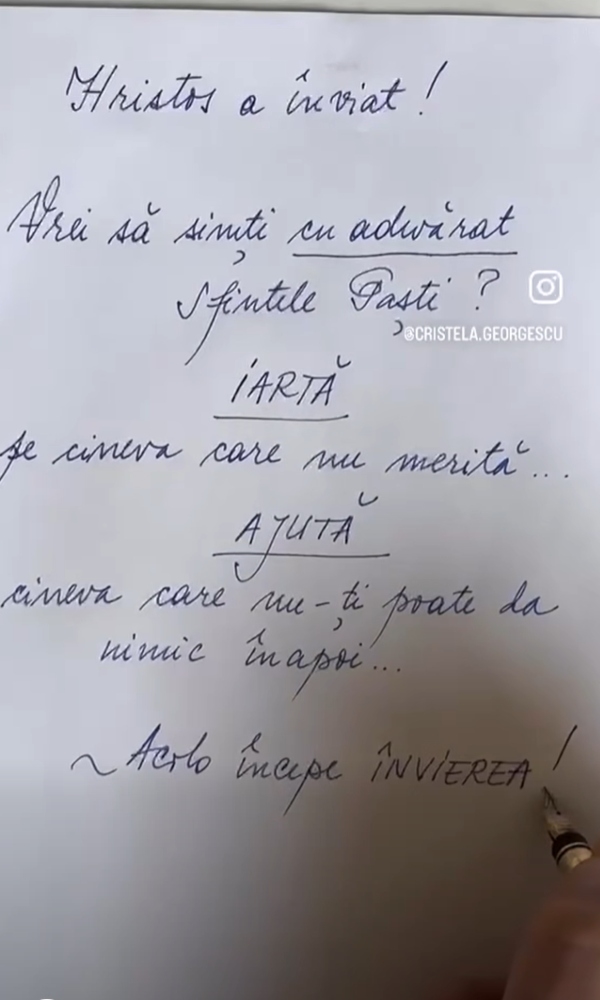 Hristos a înviat!
Vrei să simți cu adevărat
Sfintele Paști?
@CRISTELA.GEORGESCU
IARTĂ
pe cineva care nu merită...
AJUTĂ
cineva care nu-ți poate da
nimic înapoi...
~ Acolo începe ÎNVIEREA!